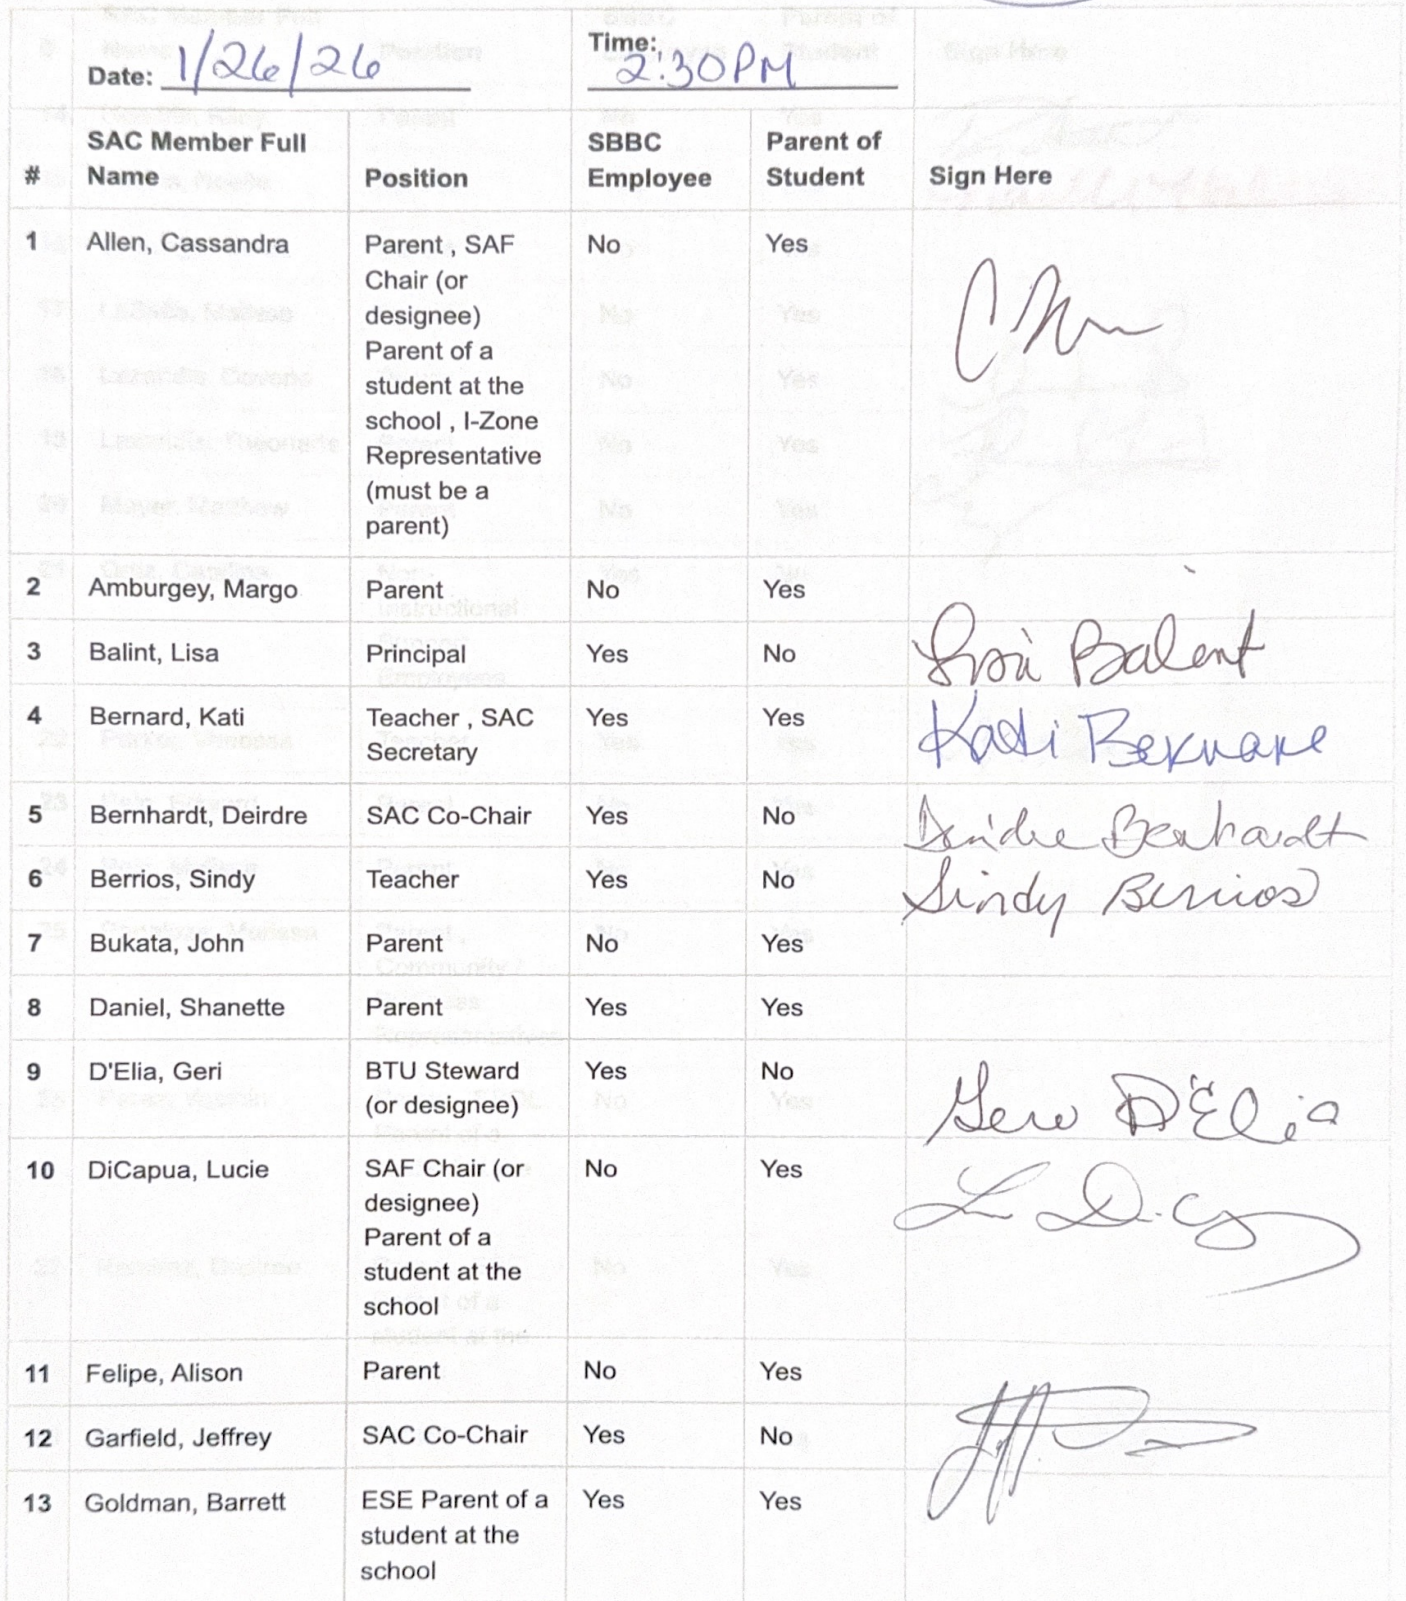 Date: 1/26/26 Time: 2:30PM
# SAC Member Full Name Position SBBC Employee Parent of Student Sign Here
1 Allen, Cassandra Parent , SAF No Yes
Chair (or
designee)
Parent of a
student at the
school , I-Zone
Representative
(must be a
parent)
2 Amburgey, Margo Parent No Yes
3 Balint, Lisa Principal Yes No Lisa Balint
4 Bernard, Kati Teacher , SAC Yes Yes Kati Bernard
Secretary
5 Bernhardt, Deirdre SAC Co-Chair Yes No Deirdre Bernhardt
6 Berrios, Sindy Teacher Yes No Sindy Berrios
7 Bukata, John Parent No Yes
8 Daniel, Shanette Parent Yes Yes
9 D'Elia, Geri BTU Steward Yes No Geri D'Elia
(or designee)
10 DiCapua, Lucie SAF Chair (or No Yes
designee)
Parent of a
student at the
school
11 Felipe, Alison Parent No Yes
12 Garfield, Jeffrey SAC Co-Chair Yes No
13 Goldman, Barrett ESE Parent of a Yes Yes
student at the
school